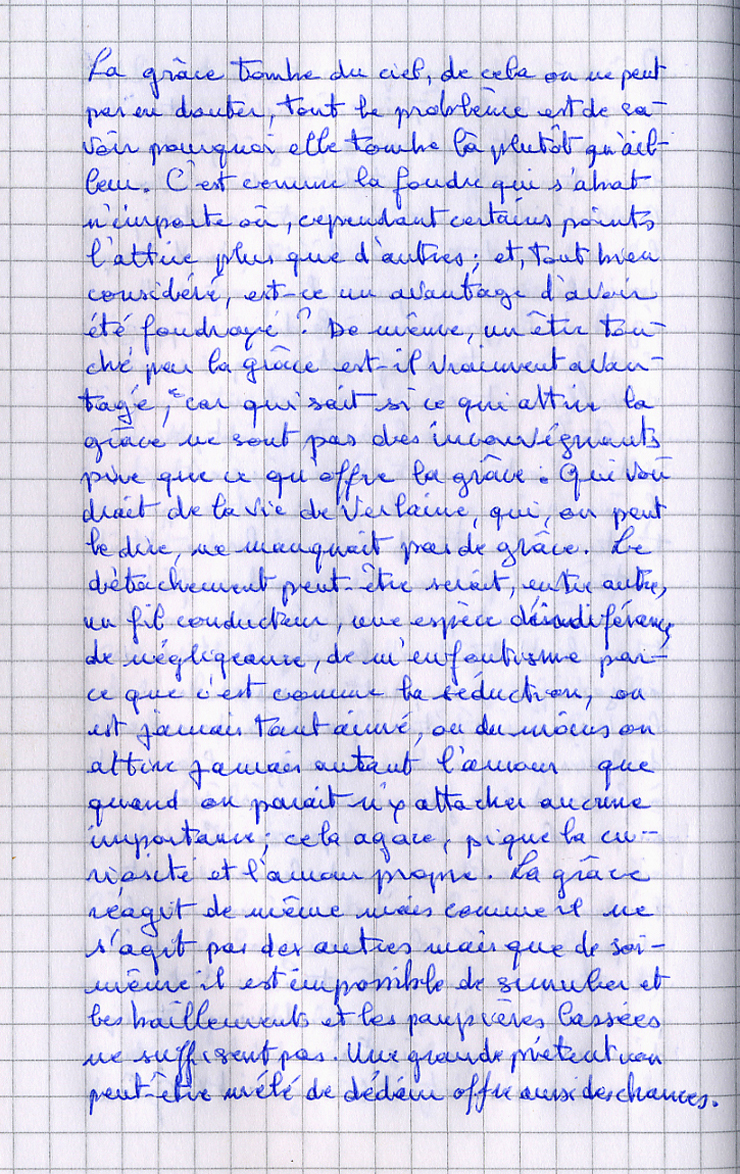 La grâce tombe du ciel, de cela on ne peut
pas en douter, tout le problème est de sa-
voir pourquoi elle tombe là plutôt qu'ail-
leurs. C'est comme la foudre qui s'abat
n'importe où, cependant certains points
l'attire plus que d'autres ; et, tout bien
considéré, est-ce un avantage d'avoir
été foudroyé ? De même, un être tou-
ché par la grâce est-il vraiment avan-
tagé, car qui sait si ce qui attire la
grâce ne sont pas des inconvégnants
pire que ce qu'offre la grâce. Qui vou
drait de la vie de Verlaine, qui, on peut
le dire, ne manquait pas de grâce. Le
détachement peut-être serait, entre autre,
un fil conducteur, une espèce d'indiférence,
de négligeance, de m'enfoutisme par-
ce que c'est comme la séduction, on
est jamais tant aimé, ou du moins on
attire jamais autant l'amour que
quand on parait n'y attacher aucune
importance ; cela agace, pique la cu-
riosité et l'amour propre. La grâce
réagit de même mais comme il ne
s'agit pas des autres mais que de soi-
même il est impossible de simuler et
les baillements et les paupières lassées
ne suffisent pas. Une grande prétention
peut-être mêlé de dédain offre aussi des chances.